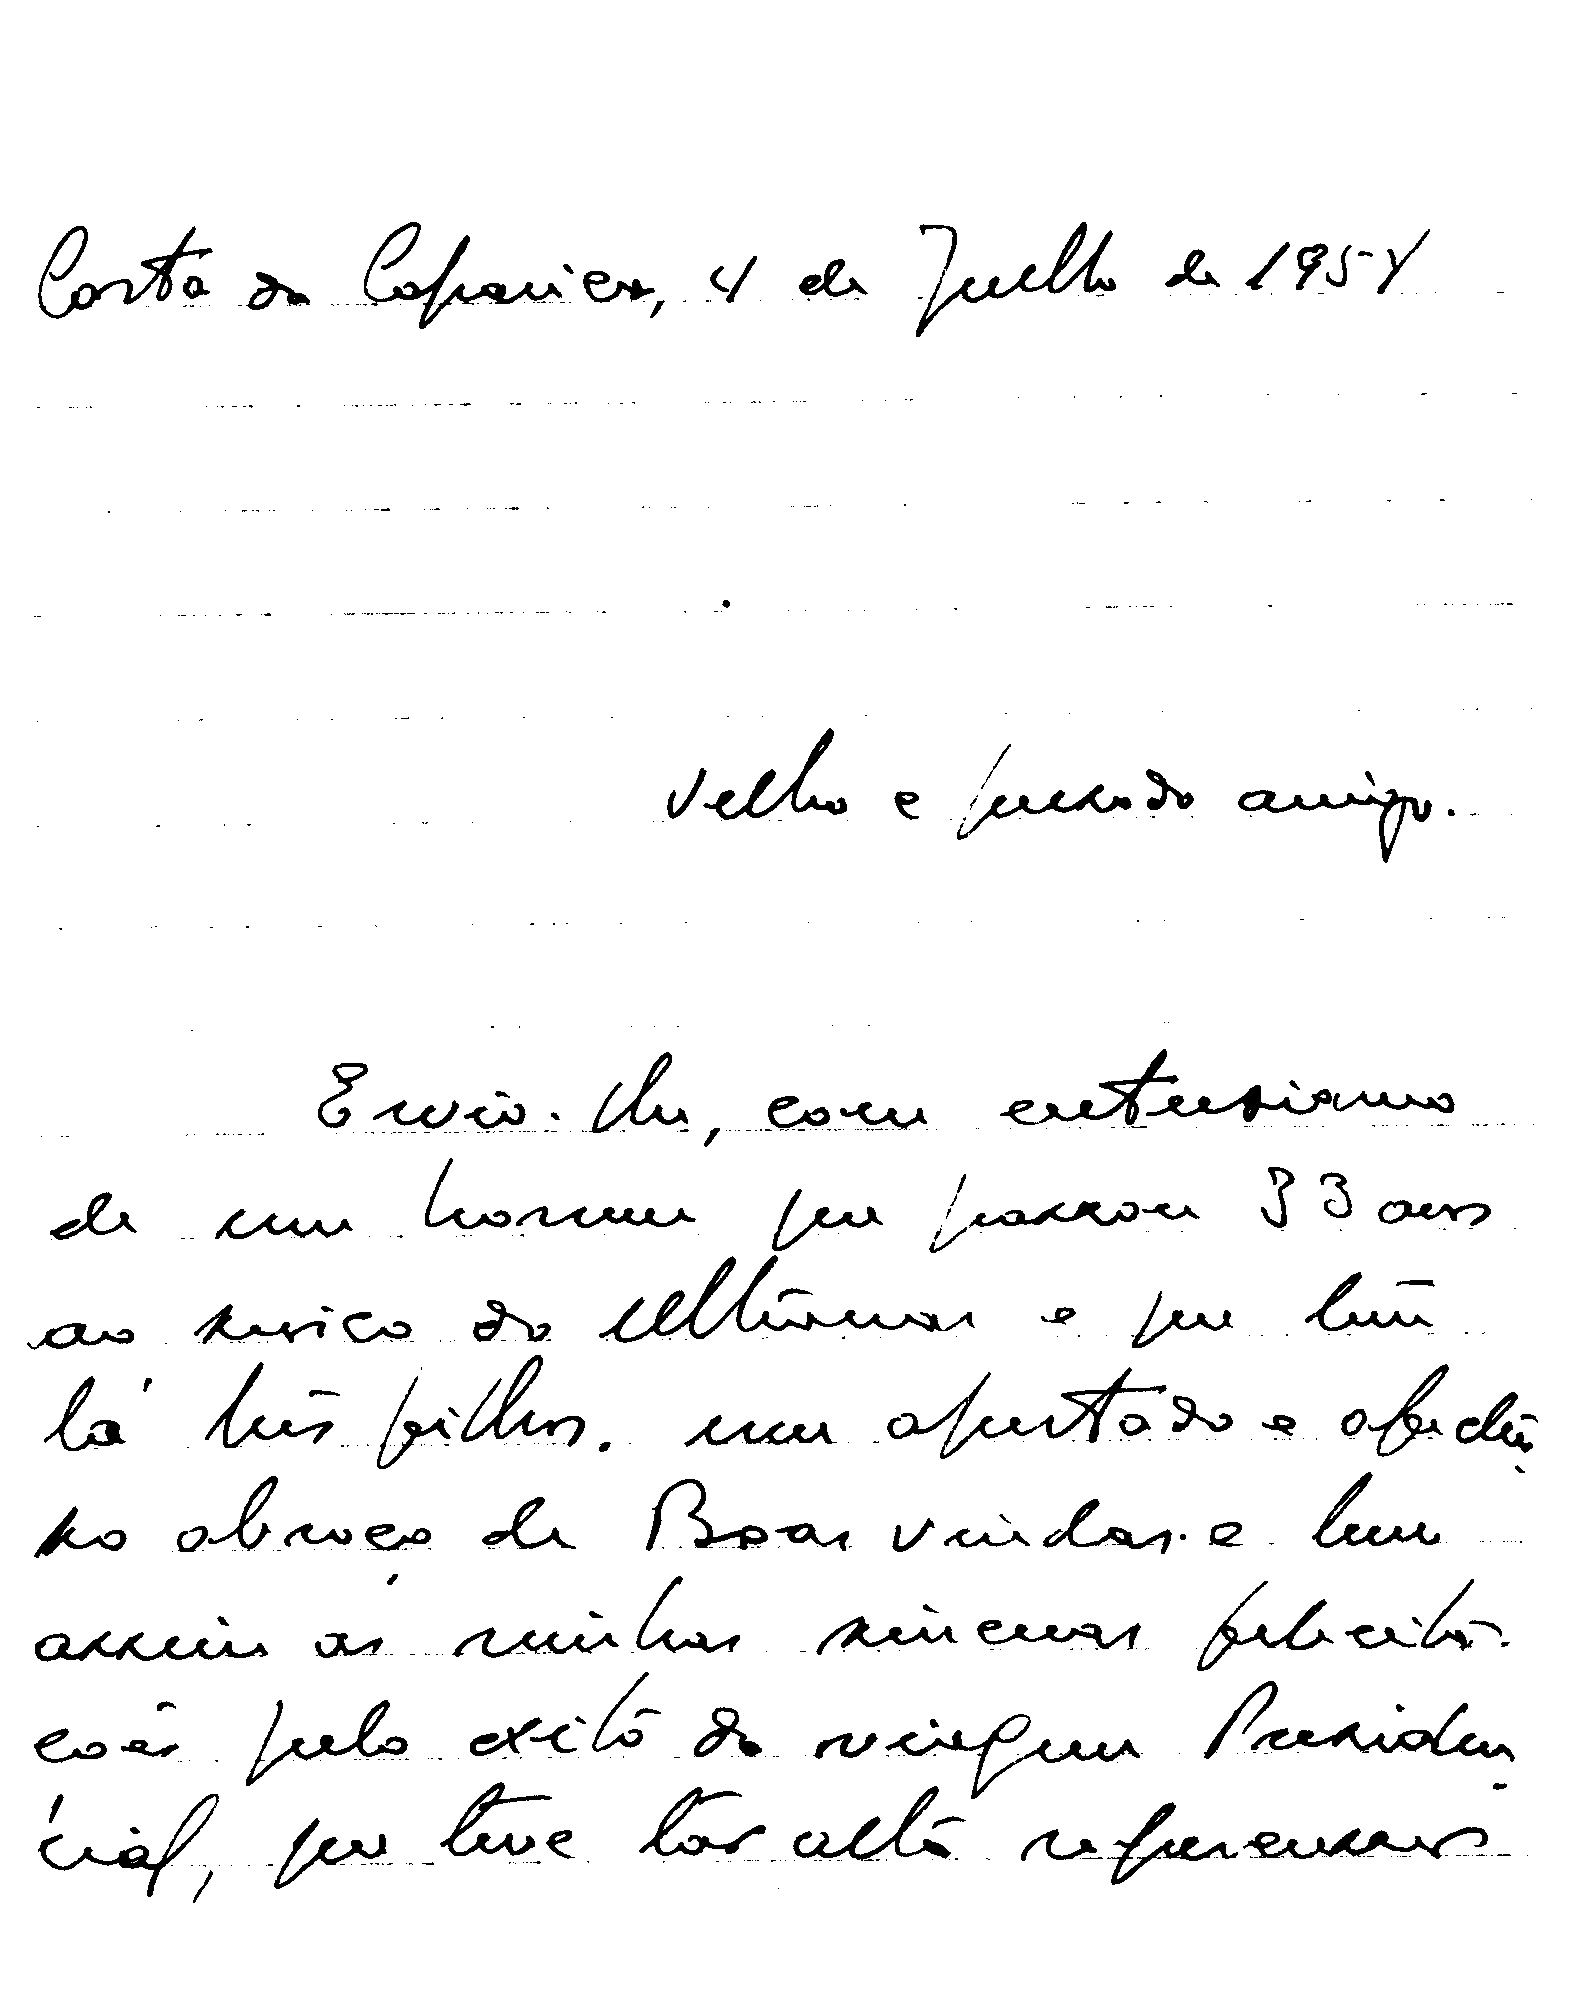 Costa da Caparica, 4 de Julho de 1954
Velho e prezado amigo.
Envio-lhe, com entusiasmo
de um homem que passou 33 anos
ao serviço do Ultramar e que tem
lá três filhos, um apertado e afectuo
so abraço de Boas vindas e bem
assim as minhas sinceras felicita-
ções pelo exito da viagem Presiden
cial, que teve tão alta